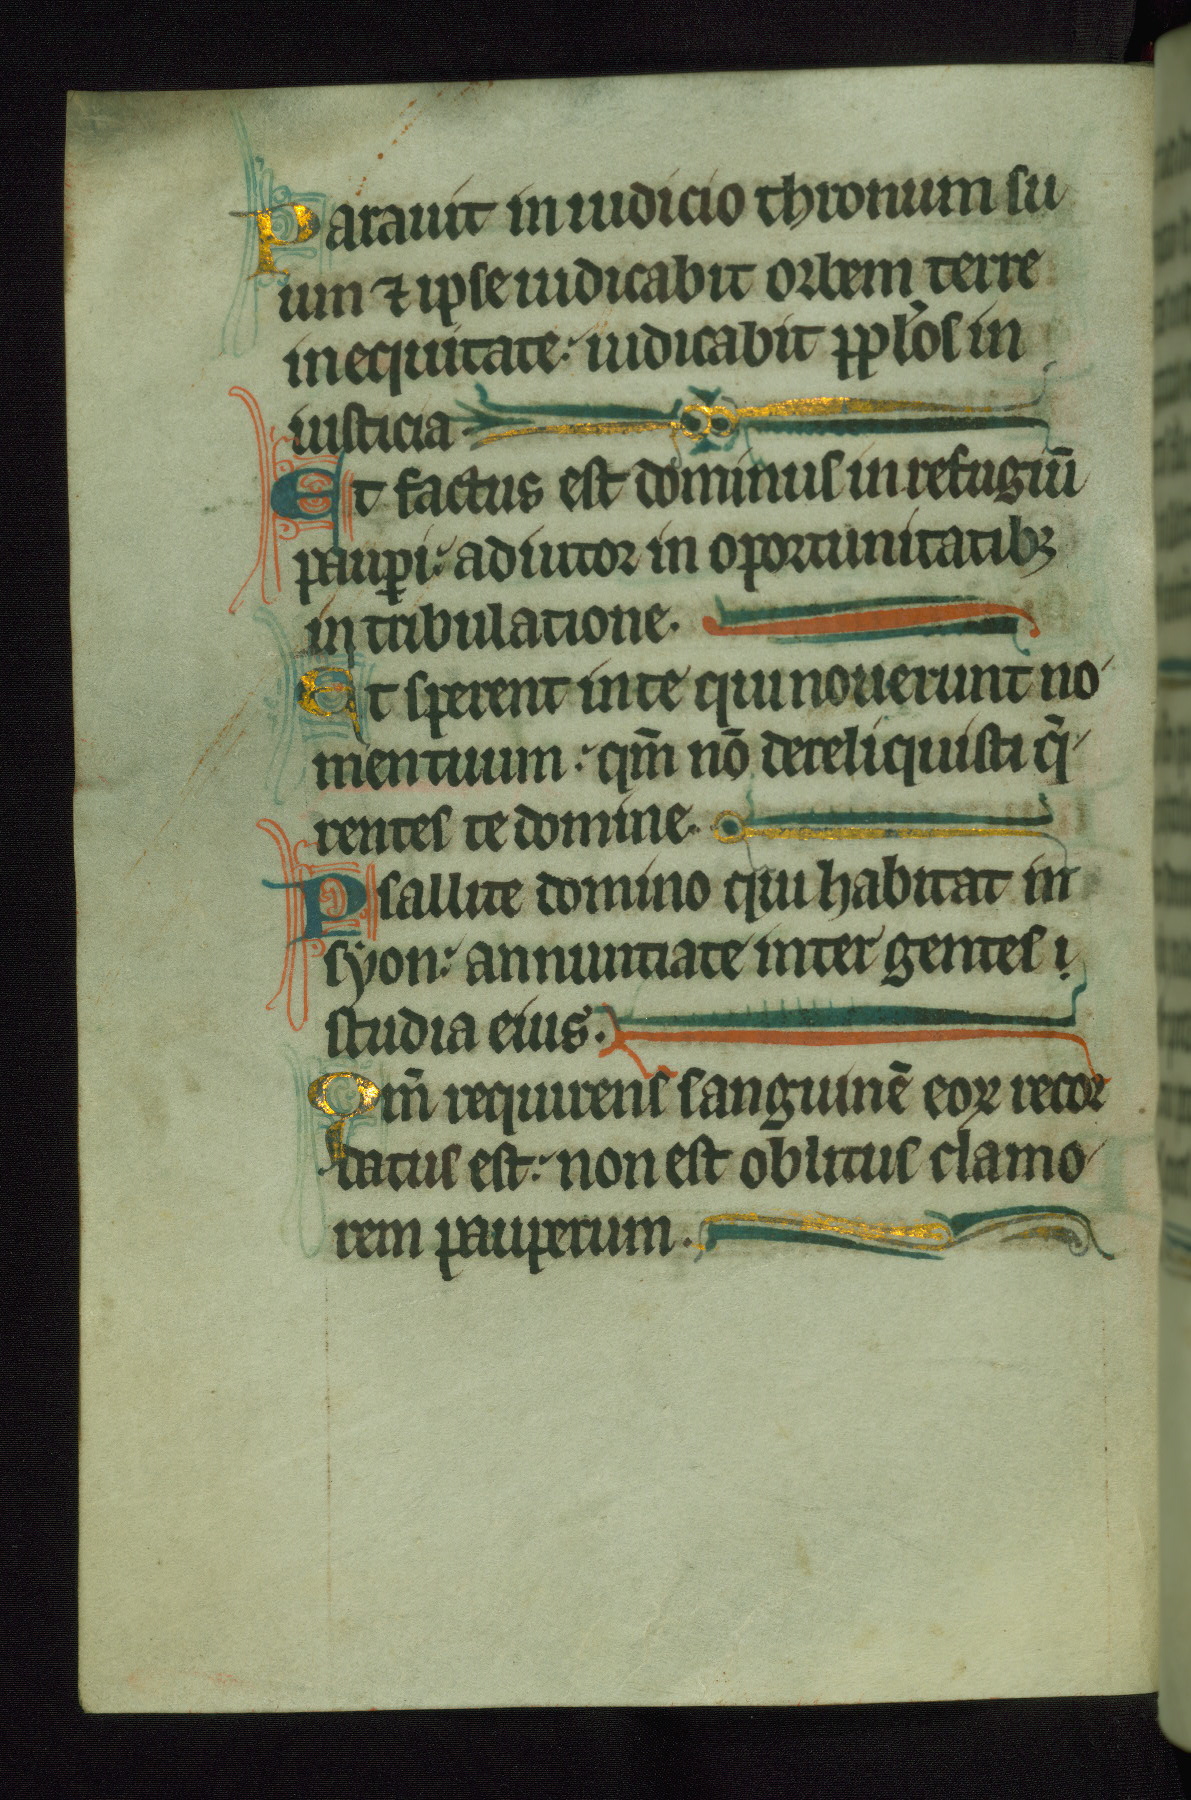 Parauit in iudicio thronum su
um ⁊ ipse iudicabit orbem terre
in equitate: iudicabit pp̱lͦos in
iusticia.
Et factus est dominus in refugiū
pauꝑi: adiutor in oportunitatibꝫ
in tribulatione.
Et sperent in te qui nouerunt no
men tuum: qm̄ nō dereliquisti q̄
rentes te domine.
Psallite domino qui habitat in
syon: annuntiate inter gentes
studia eius.
Qm̄ requirens sanguinē eoꝝ recor
datus est: non est oblitus clamo
rem pauperum.